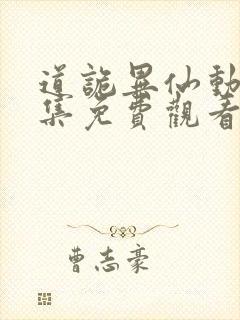 道詭異仙動
集免費觀看
曹志豪